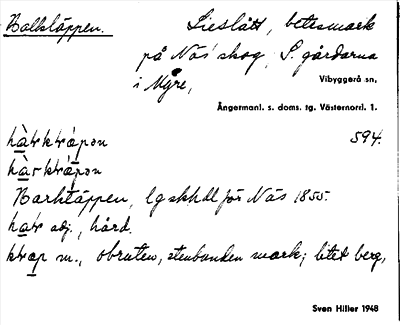 Balktäppen. Lieslått, betesmark
på Näs' skog, S. gårdarna
i Myre, Vibyggerå sn,
Ångermanl. s. doms. tg. Västernorrl. l.
594.
Harktäppen, lgskhdl för Näs 1855.
adj., hård.
m., obruten, stenbunden mark; litet berg,
Sven Hiller 1948